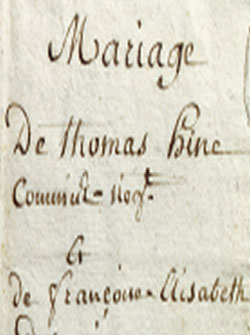 Mariage
De thomas hine
Commis - negt.
Et
de françoise - Elisabeth